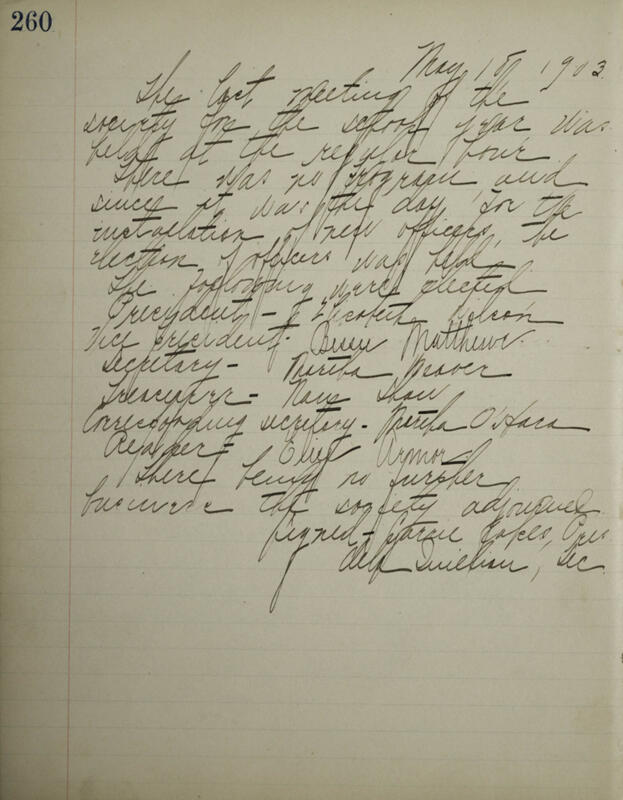 260
May 18, 1903
The last meeting of the
society for the school year was
held at the regular hour
There was no program and
since it was the day for the
installation of new officers, the
election of officers was held
The following were elected
President - Elizabeth Wilson
Vice President - Matthews
Secretary - Martha Weaver
Treasurer - Shaw
Corresponding secretary - Martha O'Hara
Armor
There being no further
business the society adjourned
Signed - Pres
Quillian, Sec